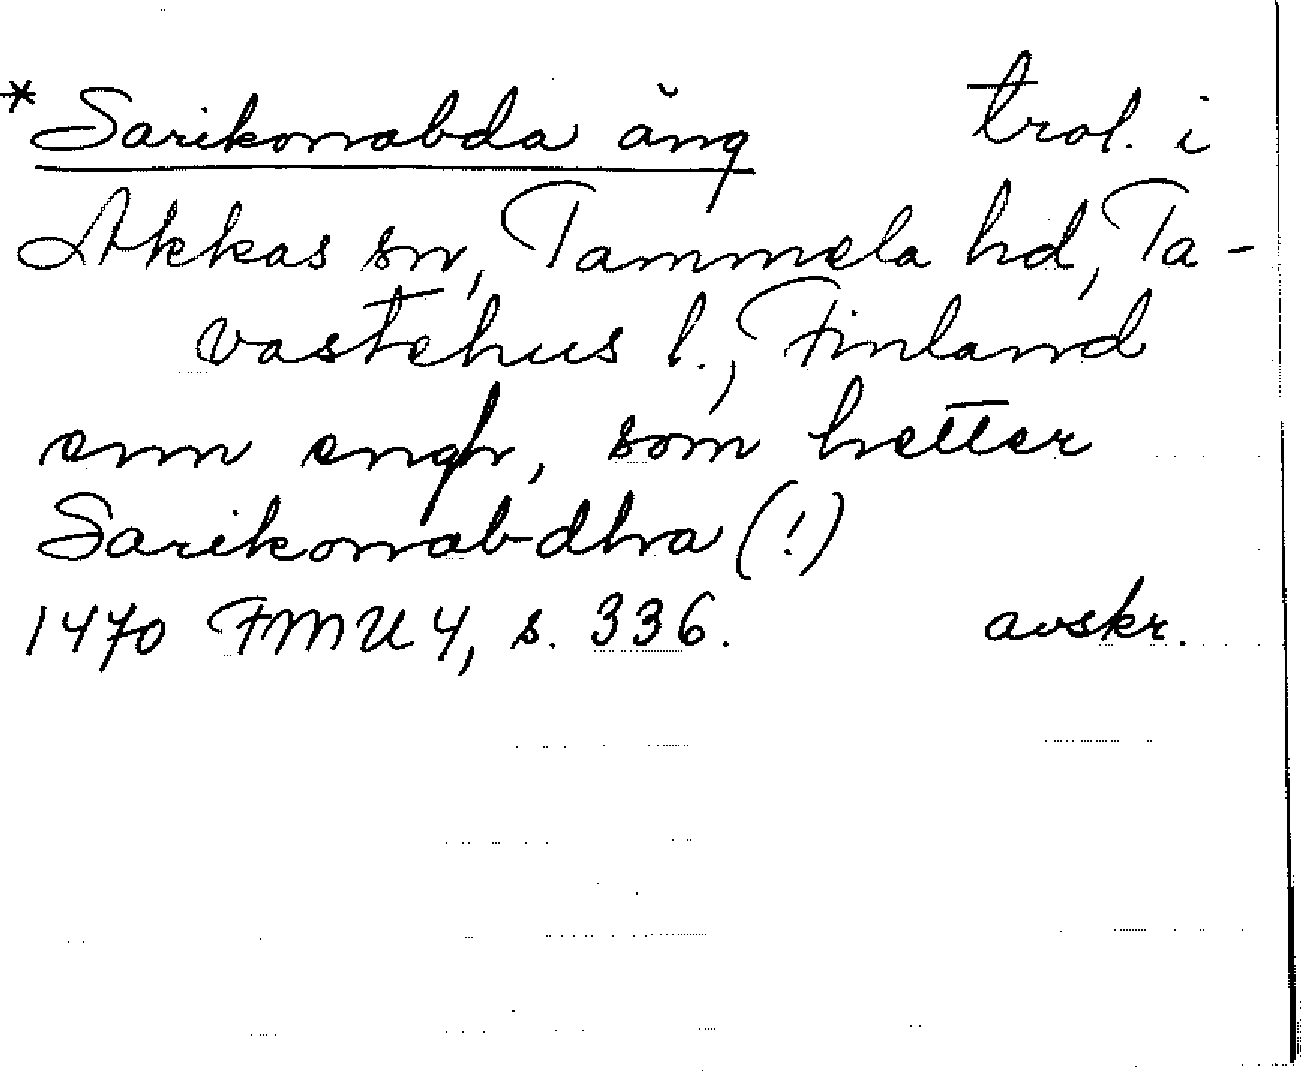 *Sarikonabda äng trol. i
Akkas sn, Tammela hd, Ta-
vastehus l., Finland
enn engh, som hetter
Sarikonab-dhra (!)
1470 FMU 4, s. 336. avskr.